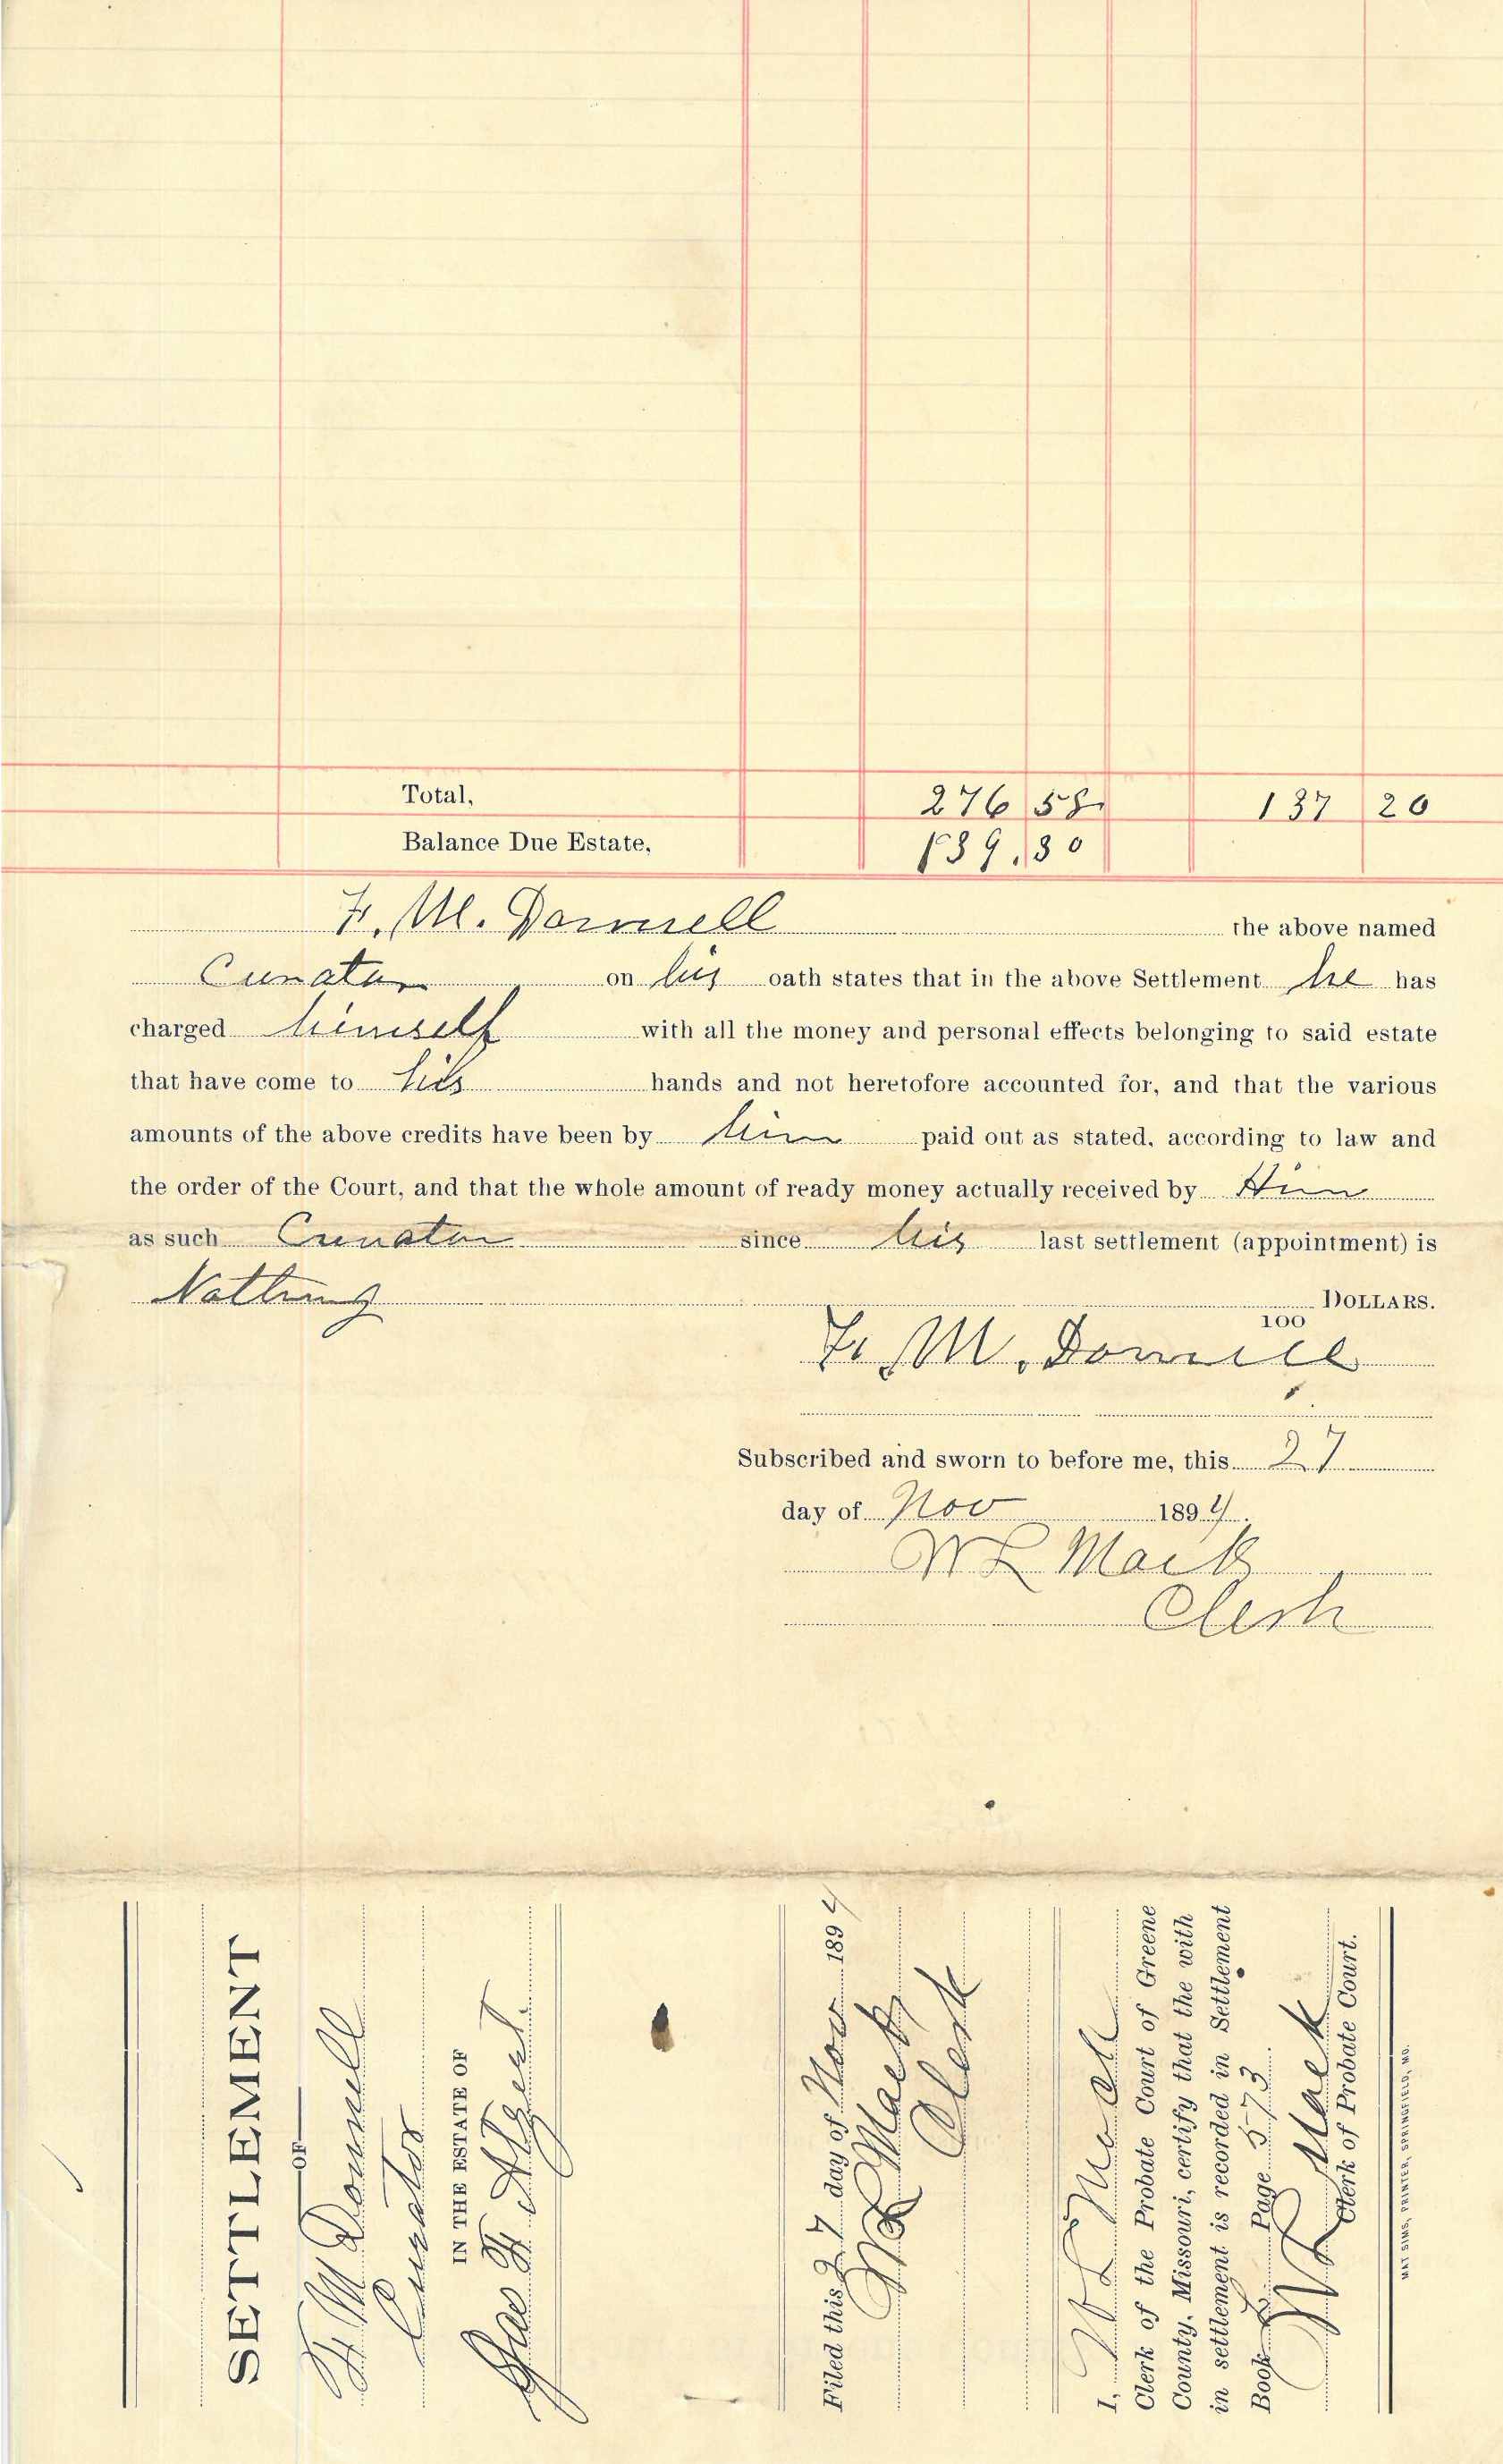 Total, 276 58 137 20
Balance Due Estate, 139.30
F. M. Donnell the above named
Curator on his oath states that in the above Settlement he has
charged himself with all the money and personal effects belonging to said estate
that have come to his hands and not heretofore accounted for, and that the various
amounts of the above credits have been by him paid out as stated, according to law and
the order of the Court, and that the whole amount of ready money actually received by Him
as such Curator since his last settlement (appointment) is
Nothing DOLLARS.
100
F. M. Donnell
Subscribed and sworn to before me, this 27
day of Nov 1894.
W L Mack
Clerk
SETTLEMENT
OF
F M Donnell
Curator
IN THE ESTATE OF
Filed this 27 day of Nov 1894
W L Mack
Clerk
I, W L Mack
Clerk of the Probate Court of Greene
County, Missouri, certify that the with
in settlement is recorded in Settlement
Book Page 573
W L Mack
Clerk of Probate Court.
MAT SIMS, PRINTER, SPRINGFIELD, MO.